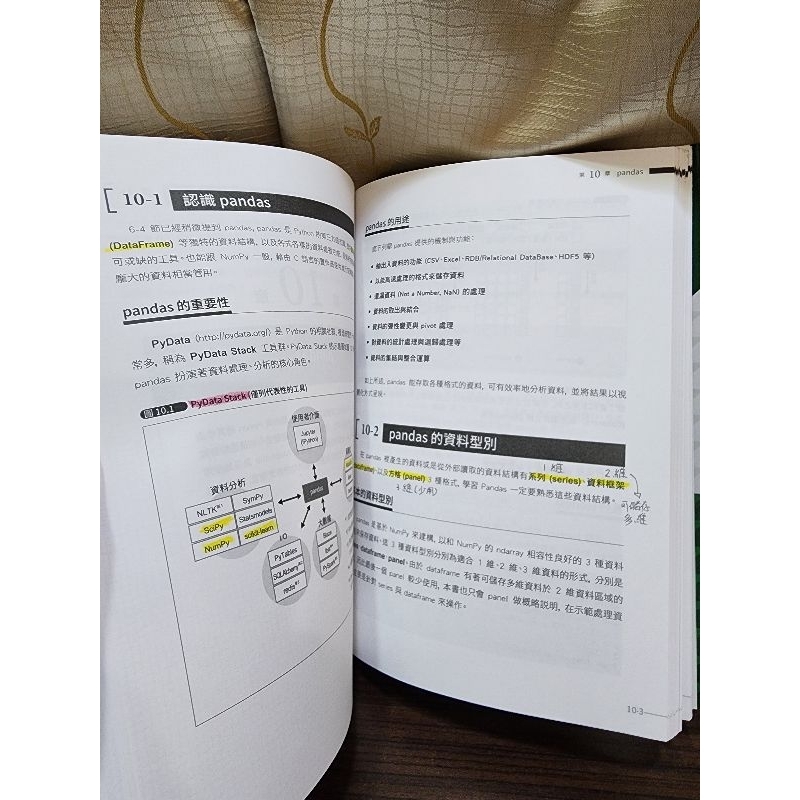 10-1 認識 pandas
6-4 節已經稍微提到 pandas, pandas 是 Python
(DataFrame) 等獨特的資料結構, 以及各式各樣的資料處理功能,
可或缺的工具。也能跟 NumPy 一般, 藉由 C 語言的
龐大的資料相當管用。
pandas 的重要性
PyData (http://pydata.org/) 是 Python 的
常多, 稱為 PyData Stack 工具群。PyData Stack
pandas 扮演著資料處理、分析的核心角色。
圖 10.1 PyData Stack (僅列代表性的工具)
使用者介面
Jupyter
(IPython)
資料分析
NLTK SymPy
SciPy Statsmodels
NumPy scikit-learn
pandas
I/O
PyTables
SQLAlchemy
redis
大數據
第 10 章 pandas
pandas 的用途
以下列舉 pandas 提供的機制與功能:
• 輸出入資料的功能 (CSV、Excel、RDB/Relational DataBase、HDF5 等)
• 以能高速處理的格式來儲存資料
• 遺漏資料 (Not a Number, NaN) 的處理
• 資料的取出與結合
• 資料的彈性變更與 pivot 處理
• 對資料的統計處理與迴歸處理等
• 資料的集結與整合運算
如上所述, pandas 能存取各種格式的資料, 可有效率地分析資料, 並將結果以視
覺化方式呈現。
10-2 pandas 的資料型別
1 維 2 維
在 pandas 裡產生的資料或是從外部讀取的資料結構有系列 (series)、資料框架
(dataframe)、以及方格 (panel) 3 種格式, 學習 Pandas 一定要熟悉這些資料結構。
3 維 (少用)
可儲存
多維
本的資料型別
pandas 是基於 NumPy 來建構, 以和 NumPy 的 ndarray 相容性良好的 3 種資料
來保存資料。這 3 種資料型別分別為適合 1 維、2 維、3 維資料的形式, 分別是
dataframe panel。由於 dataframe 有著可儲存多維資料於 2 維資料區域的
因此最後一個 panel 較少使用, 本書也只會 panel 做概略説明, 在示範處理資
要是針對 series 與 dataframe 來操作。
10-3